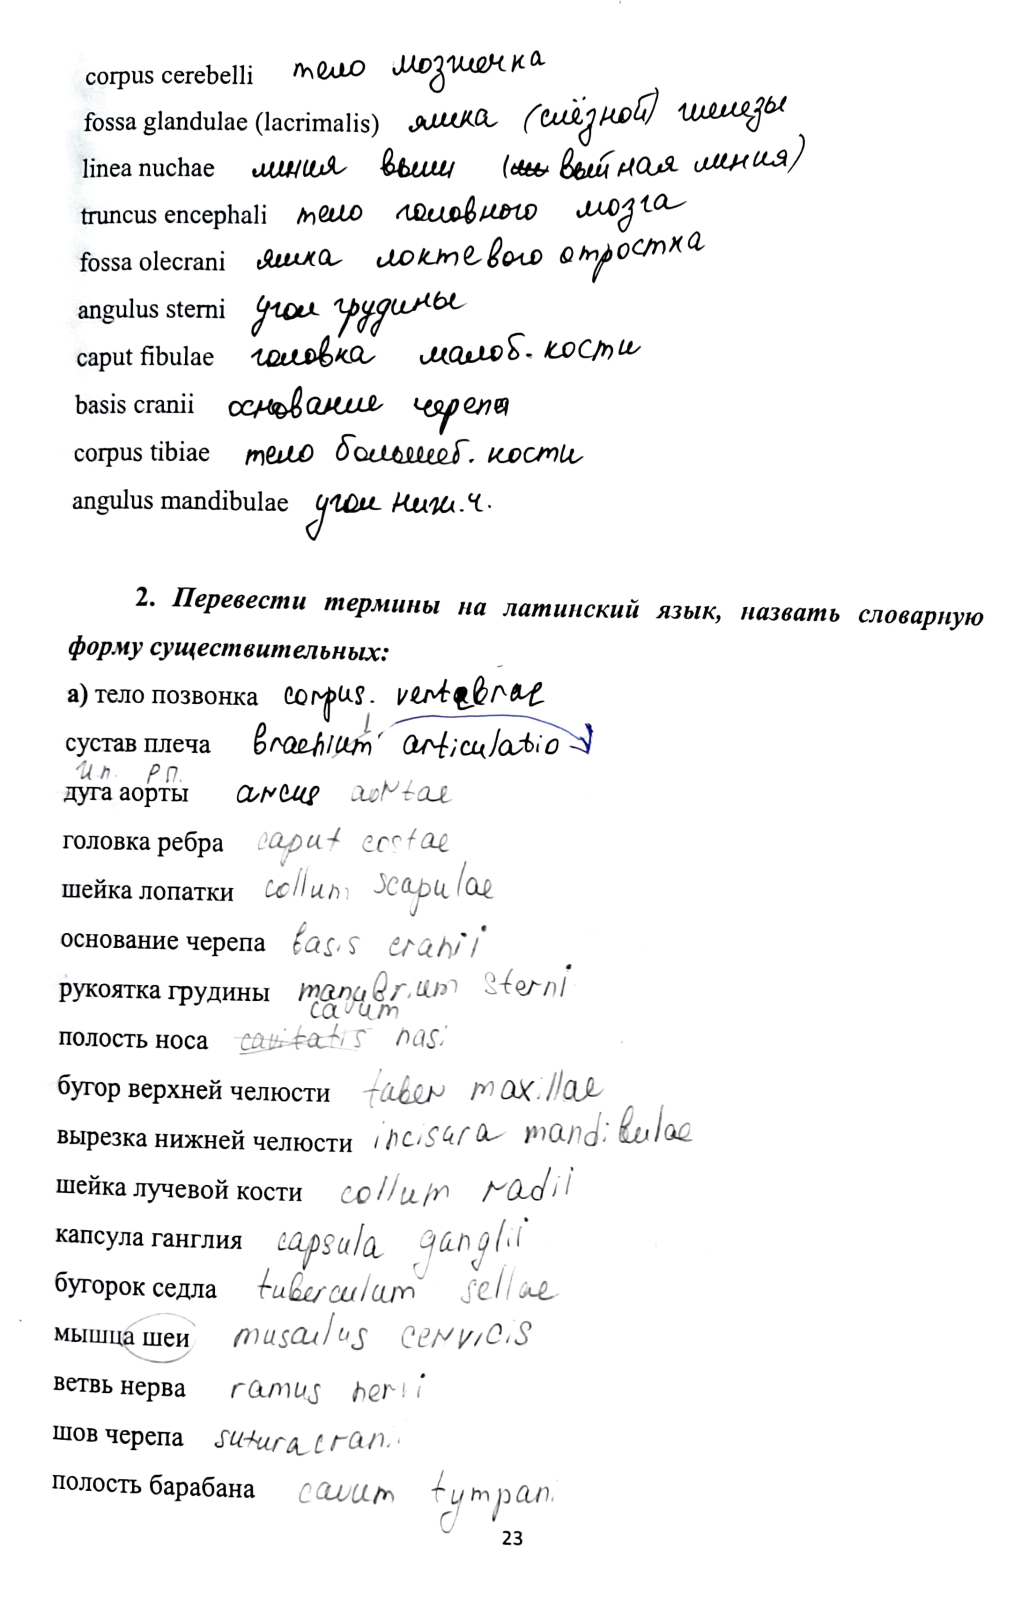 corpus cerebelli тело мозжечка
fossa glandulae (lacrimalis) ямка (слёзной) железы
linea nuchae линия выи (выйная линия)
truncus encephali тело головного мозга
fossa olecrani ямка локтевого отростка
angulus sterni угол грудины
caput fibulae головка малоб. кости
basis cranii основание черепа
corpus tibiae тело большеб. кости
angulus mandibulae угол ниж. ч.
2. Перевести термины на латинский язык, назвать словарную
форму существительных:
а) тело позвонка corpus. vertebrae
сустав плеча brachium articulatio
И.п. Р.П.
дуга аорты arcus aortae
головка ребра caput costae
шейка лопатки collum scapulae
основание черепа basis cranii
рукоятка грудины manubrium sterni
cavum
полость носа cavitatis nasi
бугор верхней челюсти tuber maxillae
вырезка нижней челюсти incisura mandibulae
шейка лучевой кости collum radii
капсула ганглия capsula ganglii
бугорок седла tuberculum sellae
мышца шеи musculus cervicis
ветвь нерва ramus nervi
шов черепа sutura cranii
полость барабана cavum tympani
23